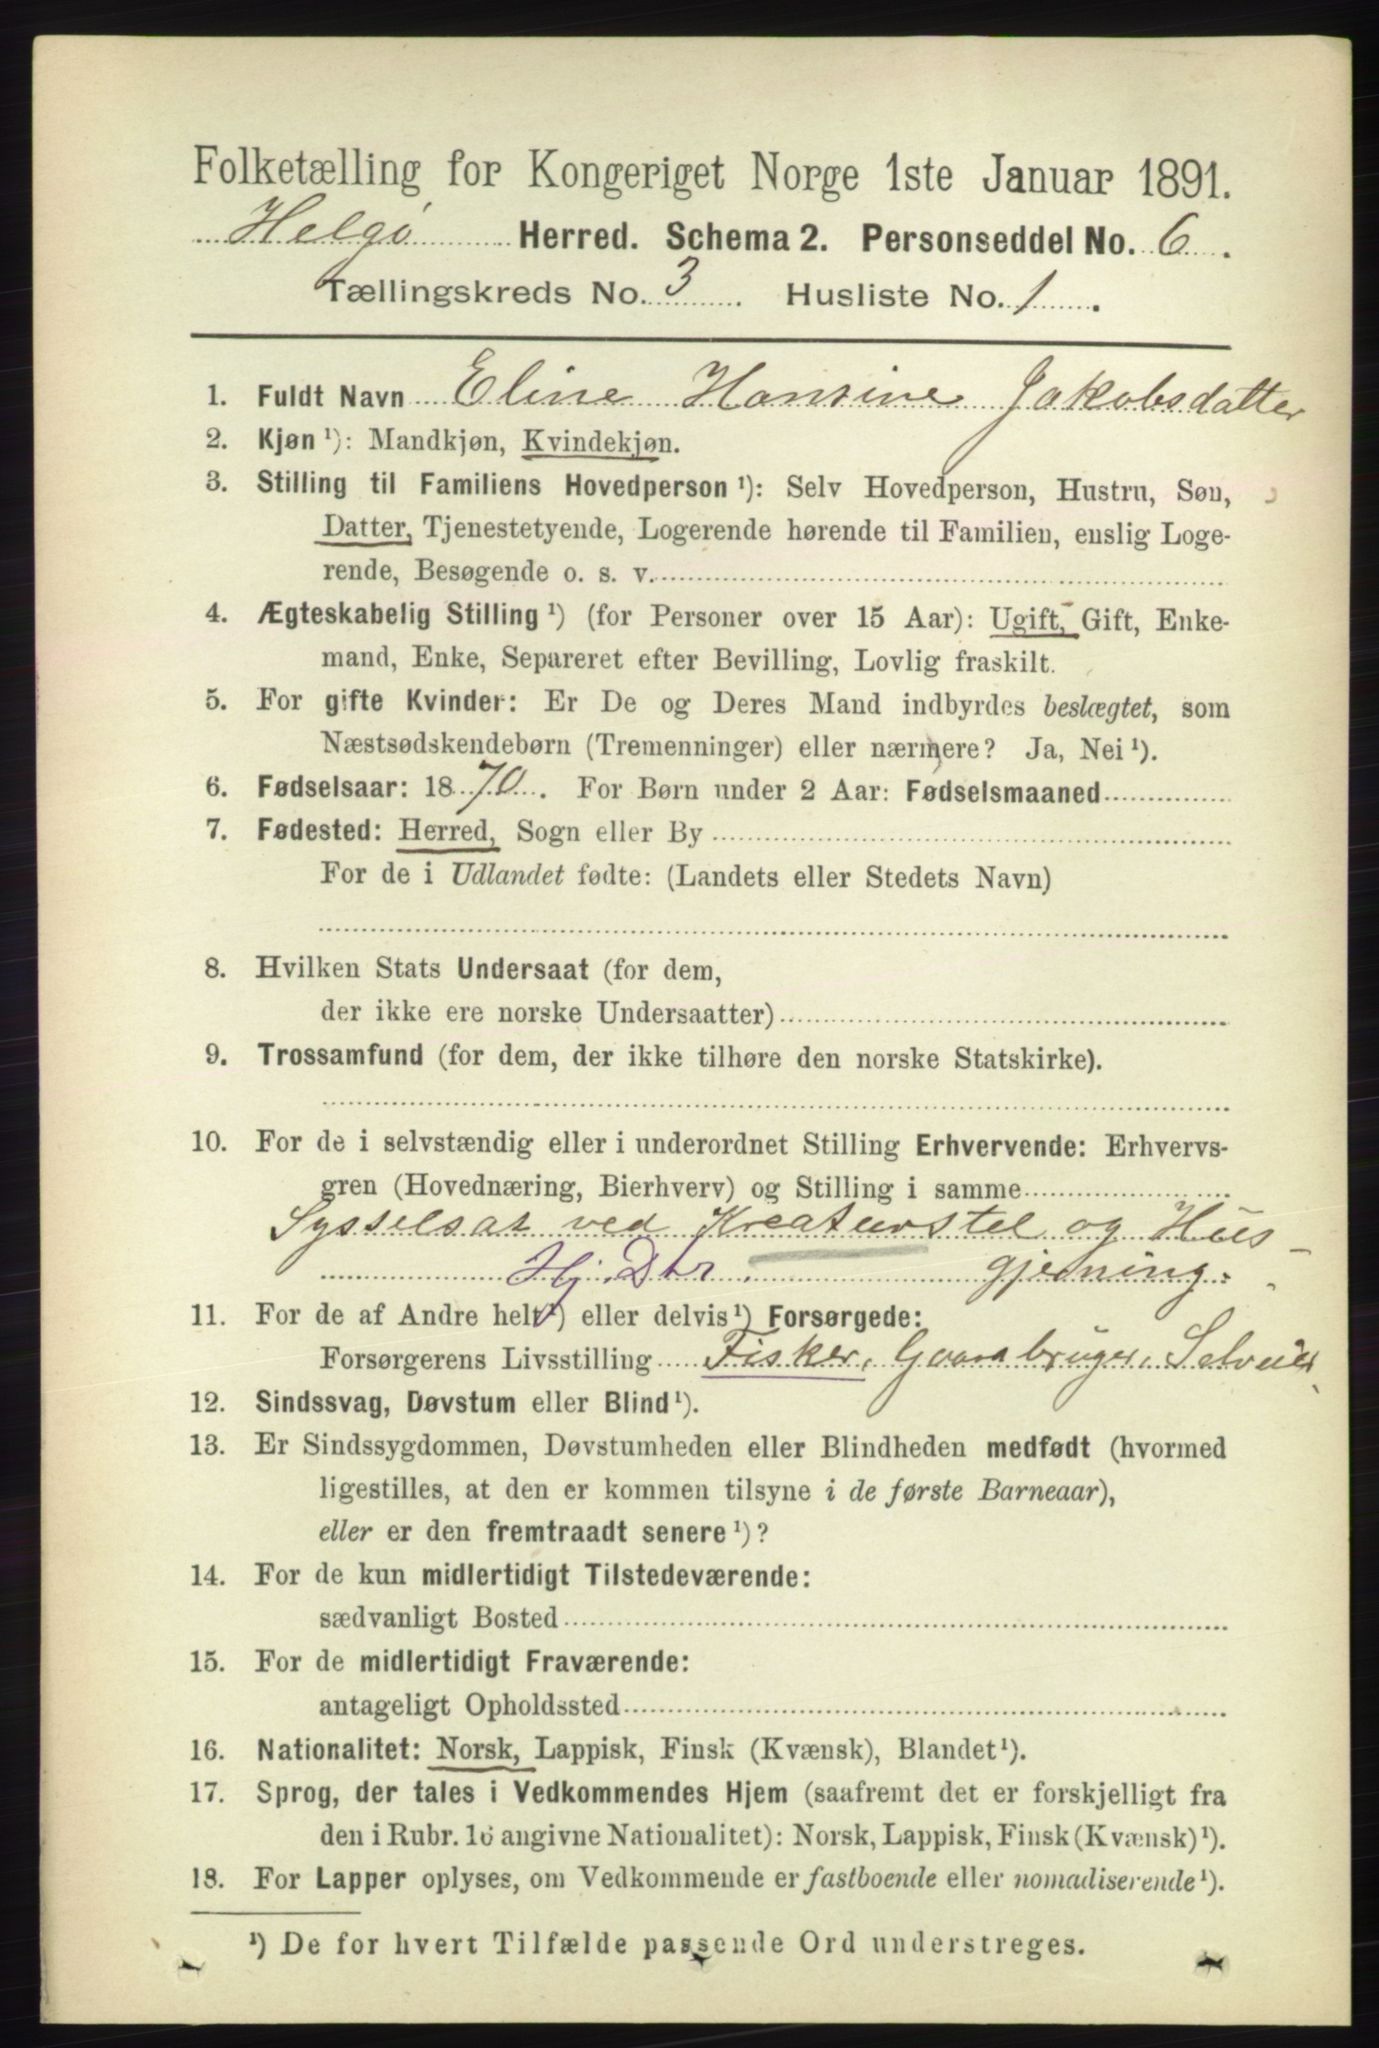 Folketælling for Kongeriget Norge 1ste Januar 1891.
Helgø Herred. Schema 2. Personseddel No. 6.
Tællingskreds No. 3. Husliste No. 1.
1. Fuldt Navn Eline Hansine Jakobsdatter
2. Kjøn ¹): Mandkjøn, Kvindekjøn.
3. Stilling til Familiens Hovedperson ¹): Selv Hovedperson, Hustru, Søn,
Datter, Tjenestetyende, Logerende hørende til Familien, enslig Loge-
rende, Besøgende o. s. v.
4. Ægteskabelig Stilling ¹) (for Personer over 15 Aar): Ugift, Gift, Enke-
mand, Enke, Separeret efter Bevilling, Lovlig fraskilt.
5. For gifte Kvinder: Er De og Deres Mand indbyrdes beslægtet, som
Næstsødskendebørn (Tremenninger) eller nærmere? Ja, Nei ¹).
6. Fødselsaar: 1870. For Børn under 2 Aar: Fødselsmaaned
7. Fødested: Herred, Sogn eller By
For de i Udlandet fødte: (Landets eller Stedets Navn)
8. Hvilken Stats Undersaat (for dem,
der ikke ere norske Undersaatter)
9. Trossamfund (for dem, der ikke tilhøre den norske Statskirke).
10. For de i selvstændig eller i underordnet Stilling Erhvervende: Erhvervs-
gren (Hovednæring, Bierhverv) og Stilling i samme
Sysselsat ved Kreaturstel og Hus-
Hj. Dtr. gjerning.
11. For de af Andre helt ¹) eller delvis ¹) Forsørgede:
Forsørgerens Livsstilling Fisker, Gaardbruger, Selveier
12. Sindssvag, Døvstum eller Blind ¹).
13. Er Sindssygdommen, Døvstumheden eller Blindheden medfødt (hvormed
ligestilles, at den er kommen tilsyne i de første Barneaar),
eller er den fremtraadt senere ¹)?
14. For de kun midlertidigt Tilstedeværende:
sædvanligt Bosted
15. For de midlertidigt Fraværende:
antageligt Opholdssted
16. Nationalitet: Norsk, Lappisk, Finsk (Kvænsk), Blandet ¹).
17. Sprog, der tales i Vedkommendes Hjem (saafremt det er forskjelligt fra
den i Rubr. 16 angivne Nationalitet): Norsk, Lappisk, Finsk (Kvænsk) ¹).
18. For Lapper oplyses, om Vedkommende er fastboende eller nomadiserende ¹).
¹) De for hvert Tilfælde passende Ord understreges.